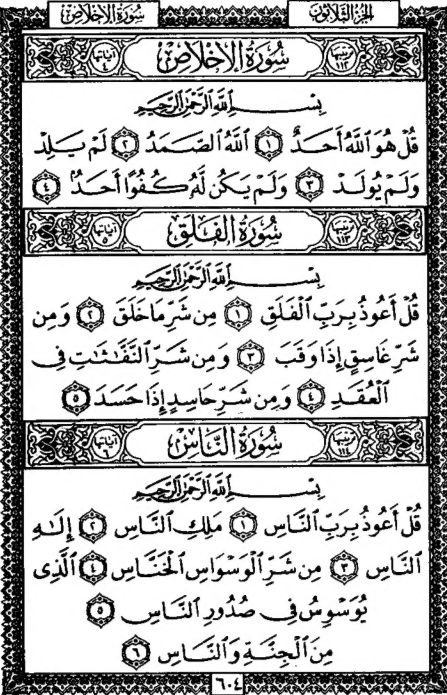 سُورَةُ الإِخْلَاصِ الجُزْءُ الثَّلَاثُونَ
ترتيبها ١١٢ سُورَةُ الإِخْلَاصِ آياتها ٤
بِسْمِ اللَّهِ الرَّحْمَٰنِ الرَّحِيمِ
قُلْ هُوَ اللَّهُ أَحَدٌ ١ اللَّهُ الصَّمَدُ ٢ لَمْ يَلِدْ
وَلَمْ يُولَدْ ٣ وَلَمْ يَكُن لَّهُ كُفُوًا أَحَدٌ ٤
ترتيبها ١١٣ سُورَةُ الفَلَقِ آياتها ٥
بِسْمِ اللَّهِ الرَّحْمَٰنِ الرَّحِيمِ
قُلْ أَعُوذُ بِرَبِّ الْفَلَقِ ١ مِن شَرِّ مَا خَلَقَ ٢ وَمِن
شَرِّ غَاسِقٍ إِذَا وَقَبَ ٣ وَمِن شَرِّ النَّفَّاثَاتِ فِي
الْعُقَدِ ٤ وَمِن شَرِّ حَاسِدٍ إِذَا حَسَدَ ٥
ترتيبها ١١٤ سُورَةُ النَّاسِ آياتها ٦
بِسْمِ اللَّهِ الرَّحْمَٰنِ الرَّحِيمِ
قُلْ أَعُوذُ بِرَبِّ النَّاسِ ١ مَلِكِ النَّاسِ ٢ إِلَٰهِ
النَّاسِ ٣ مِن شَرِّ الْوَسْوَاسِ الْخَنَّاسِ ٤ الَّذِي
يُوَسْوِسُ فِي صُدُورِ النَّاسِ ٥
مِنَ الْجِنَّةِ وَالنَّاسِ ٦
٦٠٤